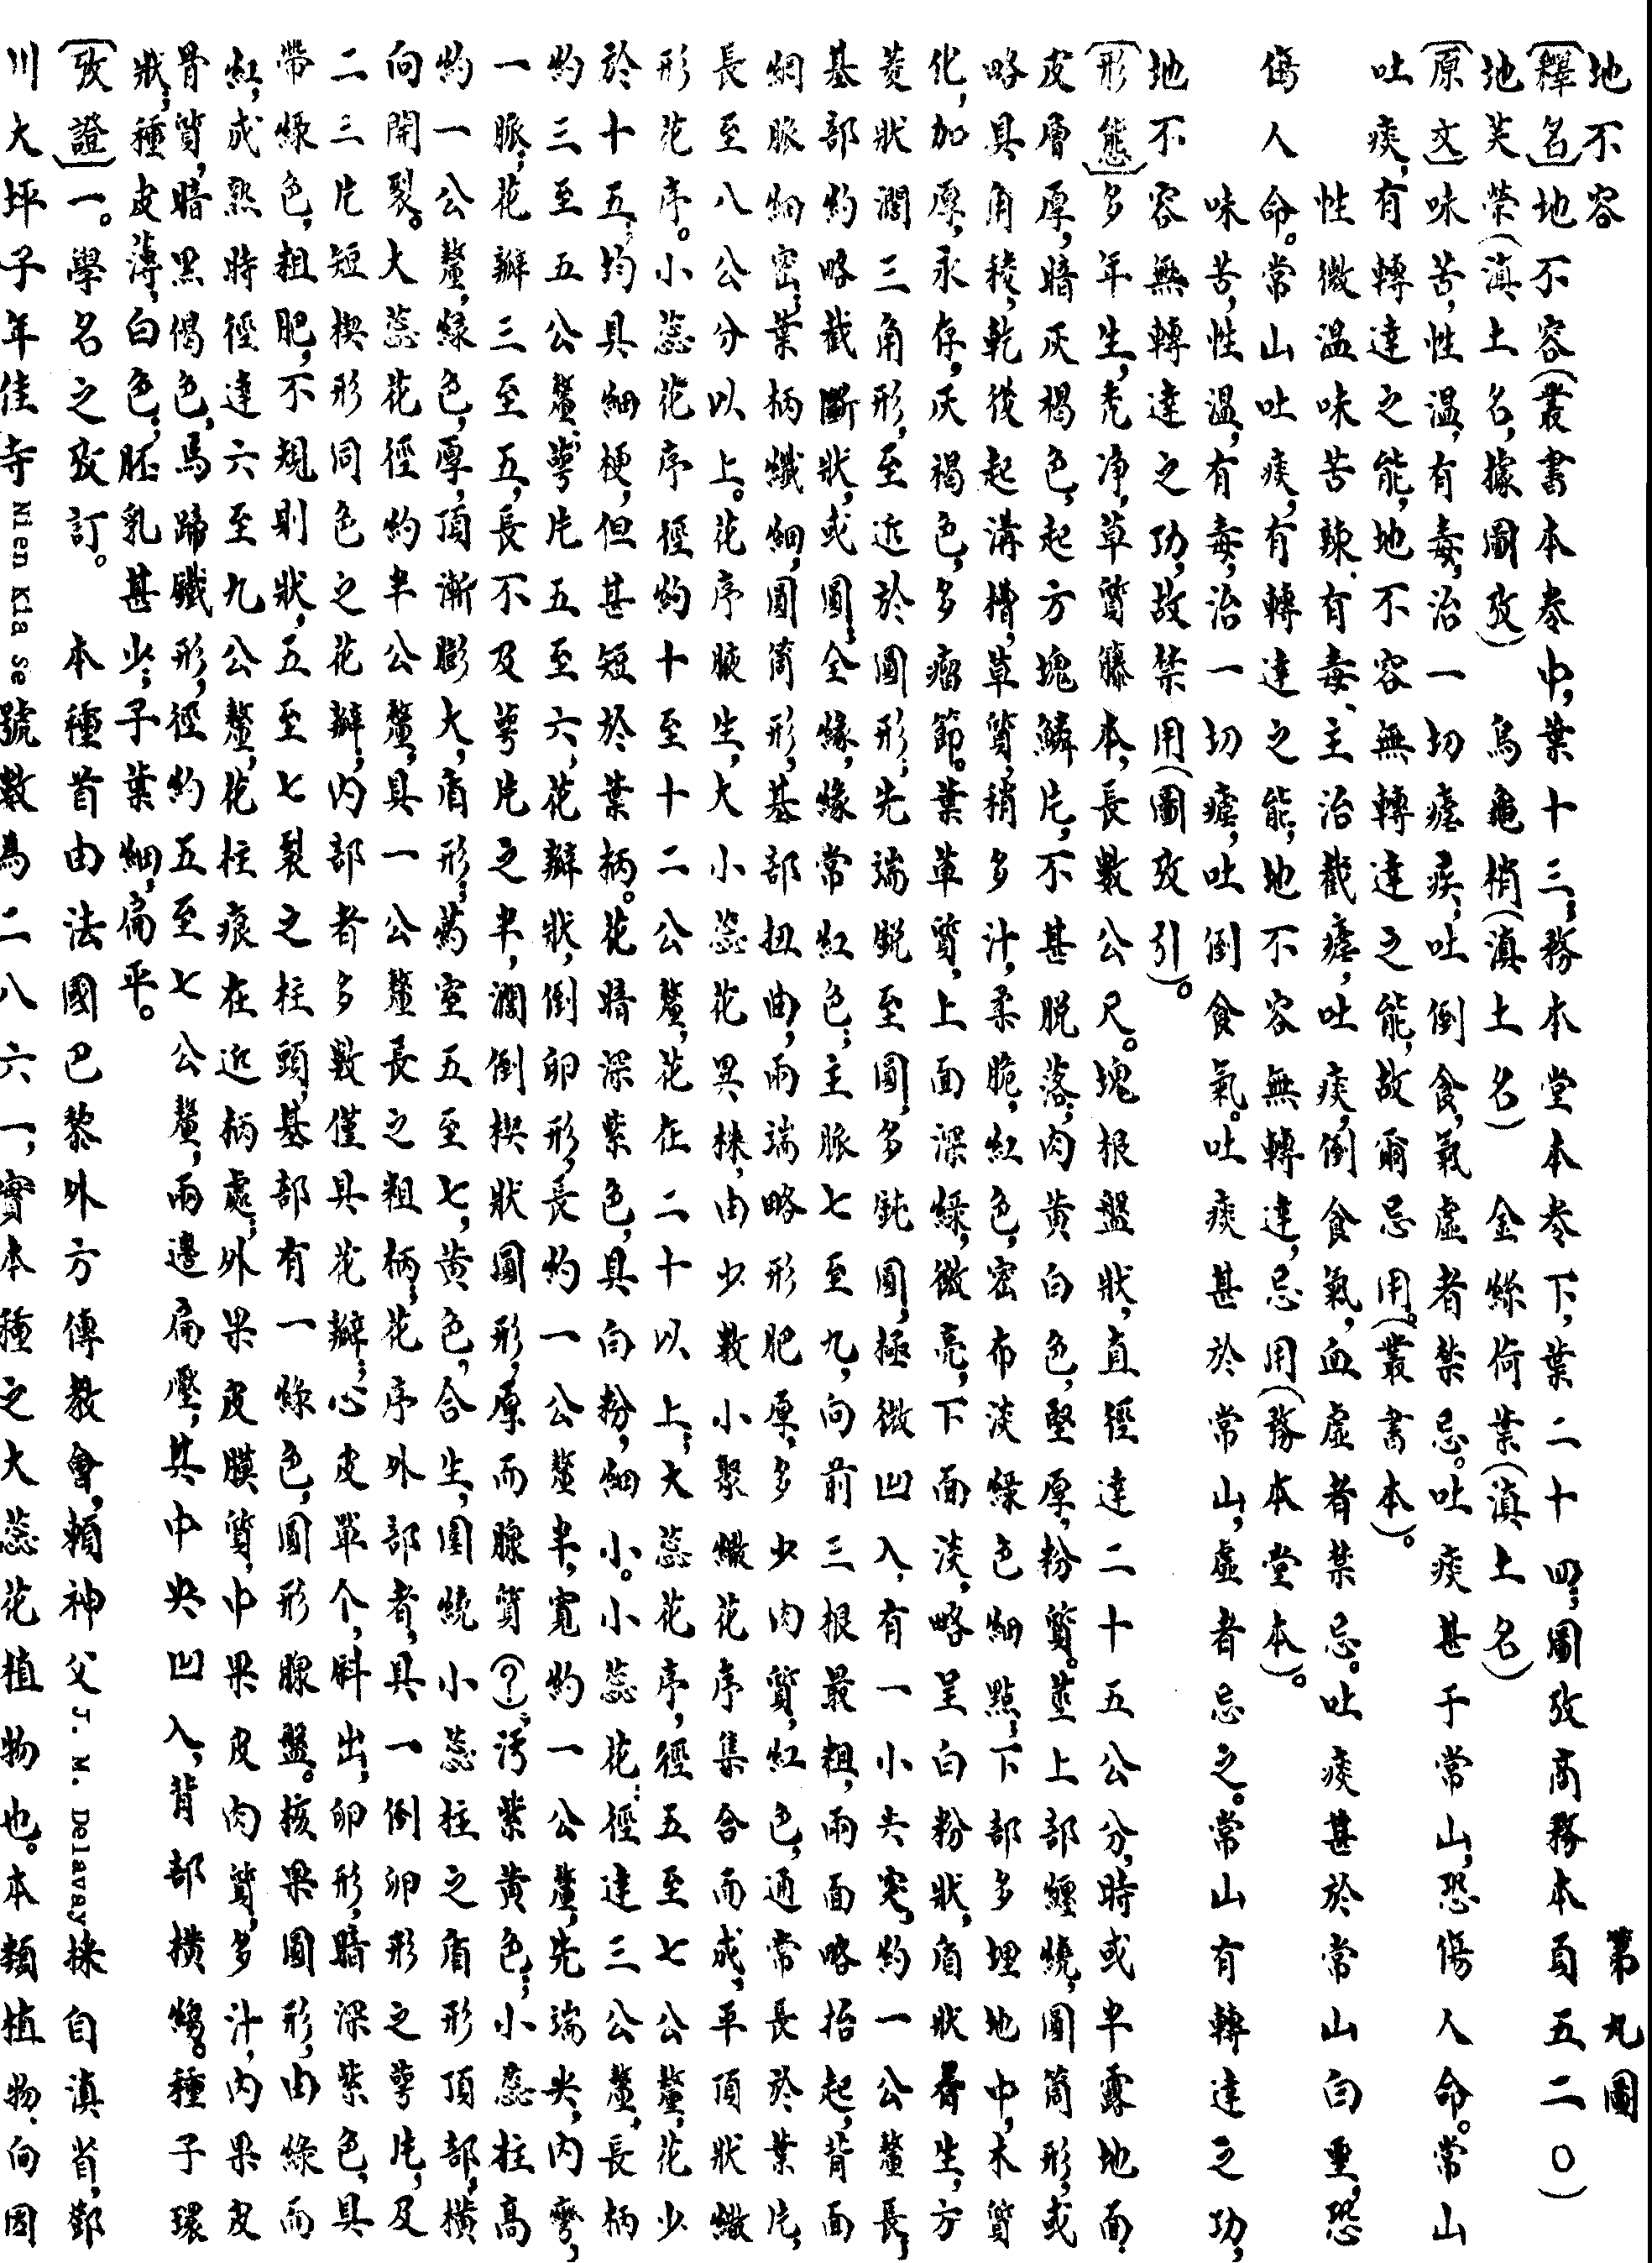 地不容　第九圖
〔釋名〕地不容（叢書本卷中，葉十三；務本堂本卷下，葉二十四；圖攷商務本頁五二〇）
地芙榮（滇土名，據圖攷）　烏龜梢（滇土名）　金絲荷葉（滇土名）
〔原文〕味苦，性温，有毒，治一切瘧疾，吐倒食，氣虛者禁忌。吐痰甚于常山，恐傷人命。常山
吐痰，有轉達之能，地不容無轉達之能，故爾忌用。（叢書本）。
性微温味苦辣、有毒、主治截瘧，吐痰，倒食氣，血虛者禁忌。吐痰甚於常山白重，恐
傷人命。常山吐痰，有轉達之能，地不容無轉達，忌用（務本堂本）。
味苦，性温，有毒，治一切瘧，吐倒食氣。吐痰甚於常山，虛者忌之。常山有轉達之功，
地不容無轉達之功，故禁用（圖攷引）。
〔形態〕多年生，禿净，草質籐本，長數公尺。塊根盤狀，直徑達二十五公分，時或半露地面，
皮層厚，暗灰褐色，起方塊鱗片，不甚脱落；肉黃白色，堅厚，粉質。莖上部纏繞，圓筒形，或
略具角稜，乾後起溝槽，草質，稍多汁，柔脆，紅色，密布淡緑色細點；下部多埋地中，木質
化，加厚，永存，灰褐色，多瘤節。葉草質，上面深緑，微亮，下面淡，略呈白粉狀，盾狀着生，方
菱狀濶三角形，至近於圓形；先端鋭至圓，多鈍圓，極微凹入，有一小尖突，約一公釐長，
基部約略截斷狀，或圓；全緣，緣常紅色；主脈七至九，向前三根最粗，兩面略抬起，背面
網脈細密；葉柄纖細，圓筒形，基部扭曲，兩端略形肥厚，多少肉質，紅色，通常長於葉片，
長至八公分以上。花序腋生，大小蕊花異株，由少數小聚繖花序集合而成，平頂狀繖
形花序。小蕊花序徑約十至十二公釐，花在二十以上；大蕊花序，徑五至七公釐，花少
於十五；均具細梗，但甚短於葉柄。花暗深紫色，具白粉，細小。小蕊花：徑達三公釐，長柄
約三至五公釐；萼片五至六，花瓣狀，倒卵形，長約一公釐半，寬約一公釐，先端尖，内彎，
一脈；花瓣三至五，長不及萼片之半，濶倒楔狀圓形，厚而腺質（？），污紫黃色；小蕊柱高
約一公釐，緑色，厚，頂漸膨大，盾形；葯室五至七，黃色，合生，圍繞小蕊柱之盾形頂部，橫
向開裂。大蕊花徑約半公釐，具一公釐長之粗柄；花序外部者，具一倒卵形之萼片，及
二三片短楔形同色之花瓣，内部者多數僅具花瓣；心皮單个，斜出，卵形，暗深紫色，具
帶緑色，粗肥，不規則狀，五至七裂之柱頭，基部有一緑色，圓形腺盤。核果圓形，由緑而
紅，成熟時徑達六至九公釐，花柱痕在近柄處；外果皮膜質，中果皮肉質，多汁，内果皮
骨質，暗黑偈色，馬蹄鐵形，徑約五至七公釐，兩邊扁壓，其中央凹入，背部橫縐。種子環
狀；種皮薄，白色；胚乳甚少；子葉細，扁平。
〔攷證〕一。學名之攷訂。　本種首由法國巴黎外方傳教會，賴神父J. M. Delavay採自滇省，鄧
川大坪子年佳寺Nien Kia Se號數為二八六一，實本種之大蕊花植物也。本類植物，向因